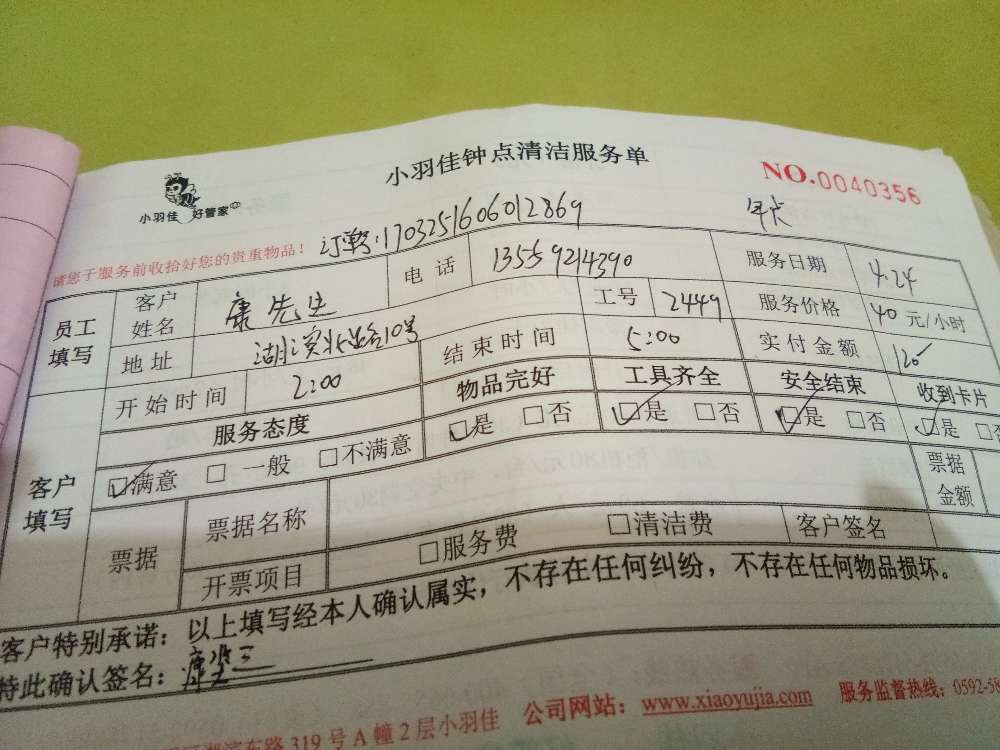 小羽佳钟点清洁服务单
NO.0040356
小羽佳 好管家
请您于服务前收拾好您的贵重物品!
1703251606012869
员工填写 客户姓名 康先生 电话 13559214390 服务日期 4.24
地址 湖滨北路10号 工号 2449 服务价格 40 元/小时
客户填写 开始时间 2:00 结束时间 5:00 实付金额 120
服务态度 物品完好 工具齐全 安全结束 收到卡片
☑满意 □一般 □不满意 ☑是 □否 ☑是 □否 ☑是 □否 ☑是 □否
票据 票据名称 票据金额
开票项目 □服务费 □清洁费 客户签名
客户特别承诺：以上填写经本人确认属实，不存在任何纠纷，不存在任何物品损坏。
特此确认签名：
东路 319 号 A 幢 2 层小羽佳 公司网站：www.xiaoyujia.com 服务监督热线：0592-58